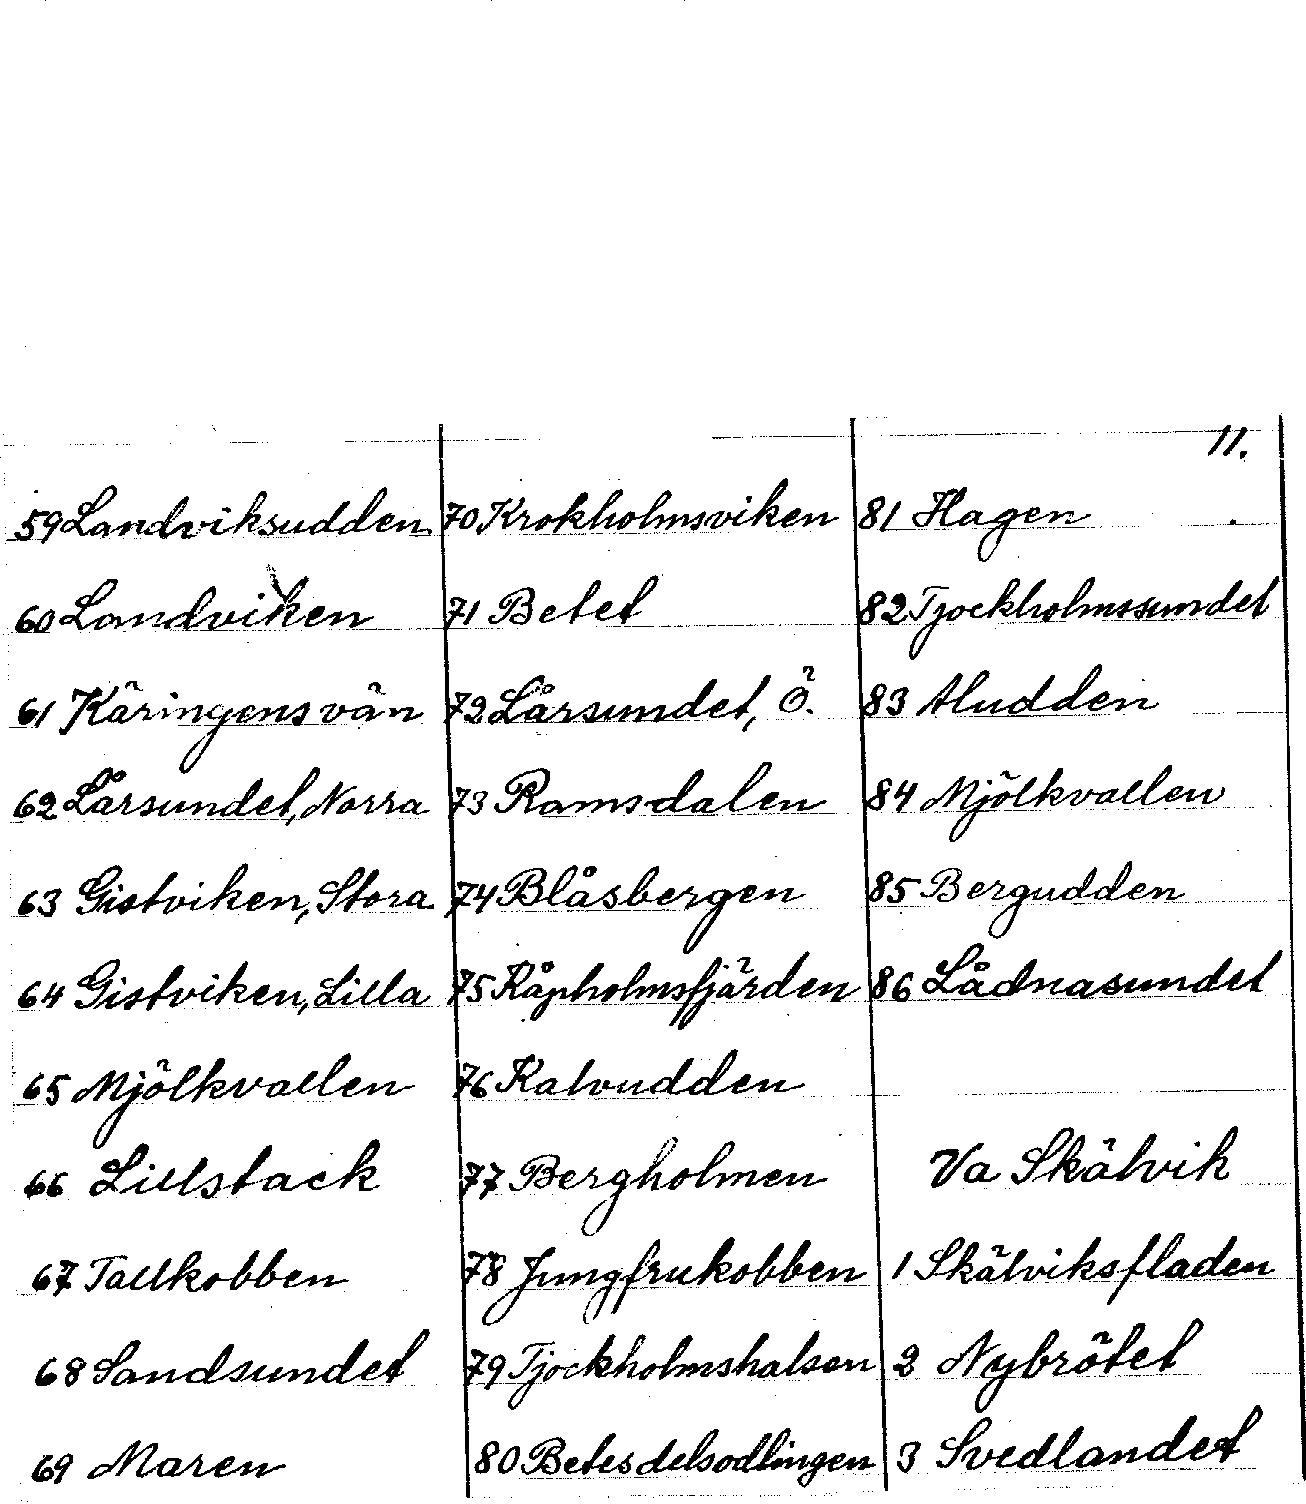 11.
59 Landviksudden
60 Landviken
61 Käringens vän
62 Lårsundet, Norra
63 Gistviken, Stora
64 Gistviken, Lilla
65 Mjölkvallen
66 Lillstack
67 Tallkobben
68 Sandsundet
69 Maren
70 Krokholmsviken
71 Betet
72 Lårsundet, Ö.
73 Ramsdalen
74 Blåsbergen
75 Råpholmsfjärden
76 Kalvudden
77 Bergholmen
78 Jungfrukobben
79 Tjockholmshalsen
80 Betesdelsodlingen
81 Hagen
82 Tjockholmssundet
83 Aludden
84 Mjölkvallen
85 Bergudden
86 Lådnasundet
Va Skälvik
1 Skälviksfladen
2 Nybrötet
3 Svedlandet